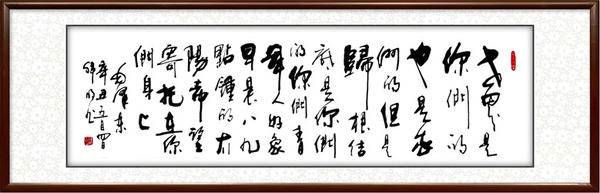 世界是
你們的
也是我
們的但是
歸根結
底是你們
的你們青
年人好象
早晨八九
點鐘的太
陽希望
寄托在你
們身上
毛澤東
辛丑五月四日